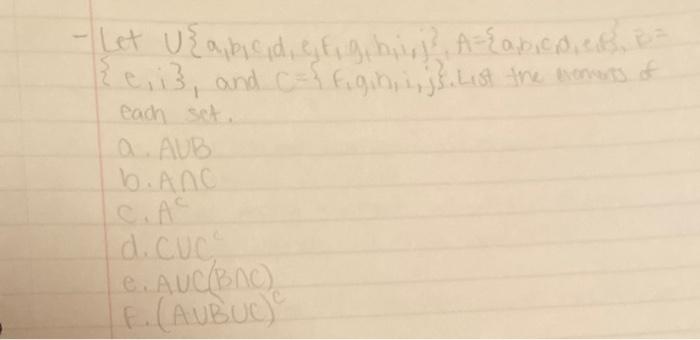 - Let U{a,b,c,d,e,f,g,h,i,j}, A={a,b,c,d,e,f}, B=
{e,i}, and C={f,g,h,i,j}. List the elements of
each set.
a. A∪B
b. A∩C
c. Aᶜ
d. C∪Cᶜ
e. A∪C(B∩C)
F. (A∪B∪C)ᶜ